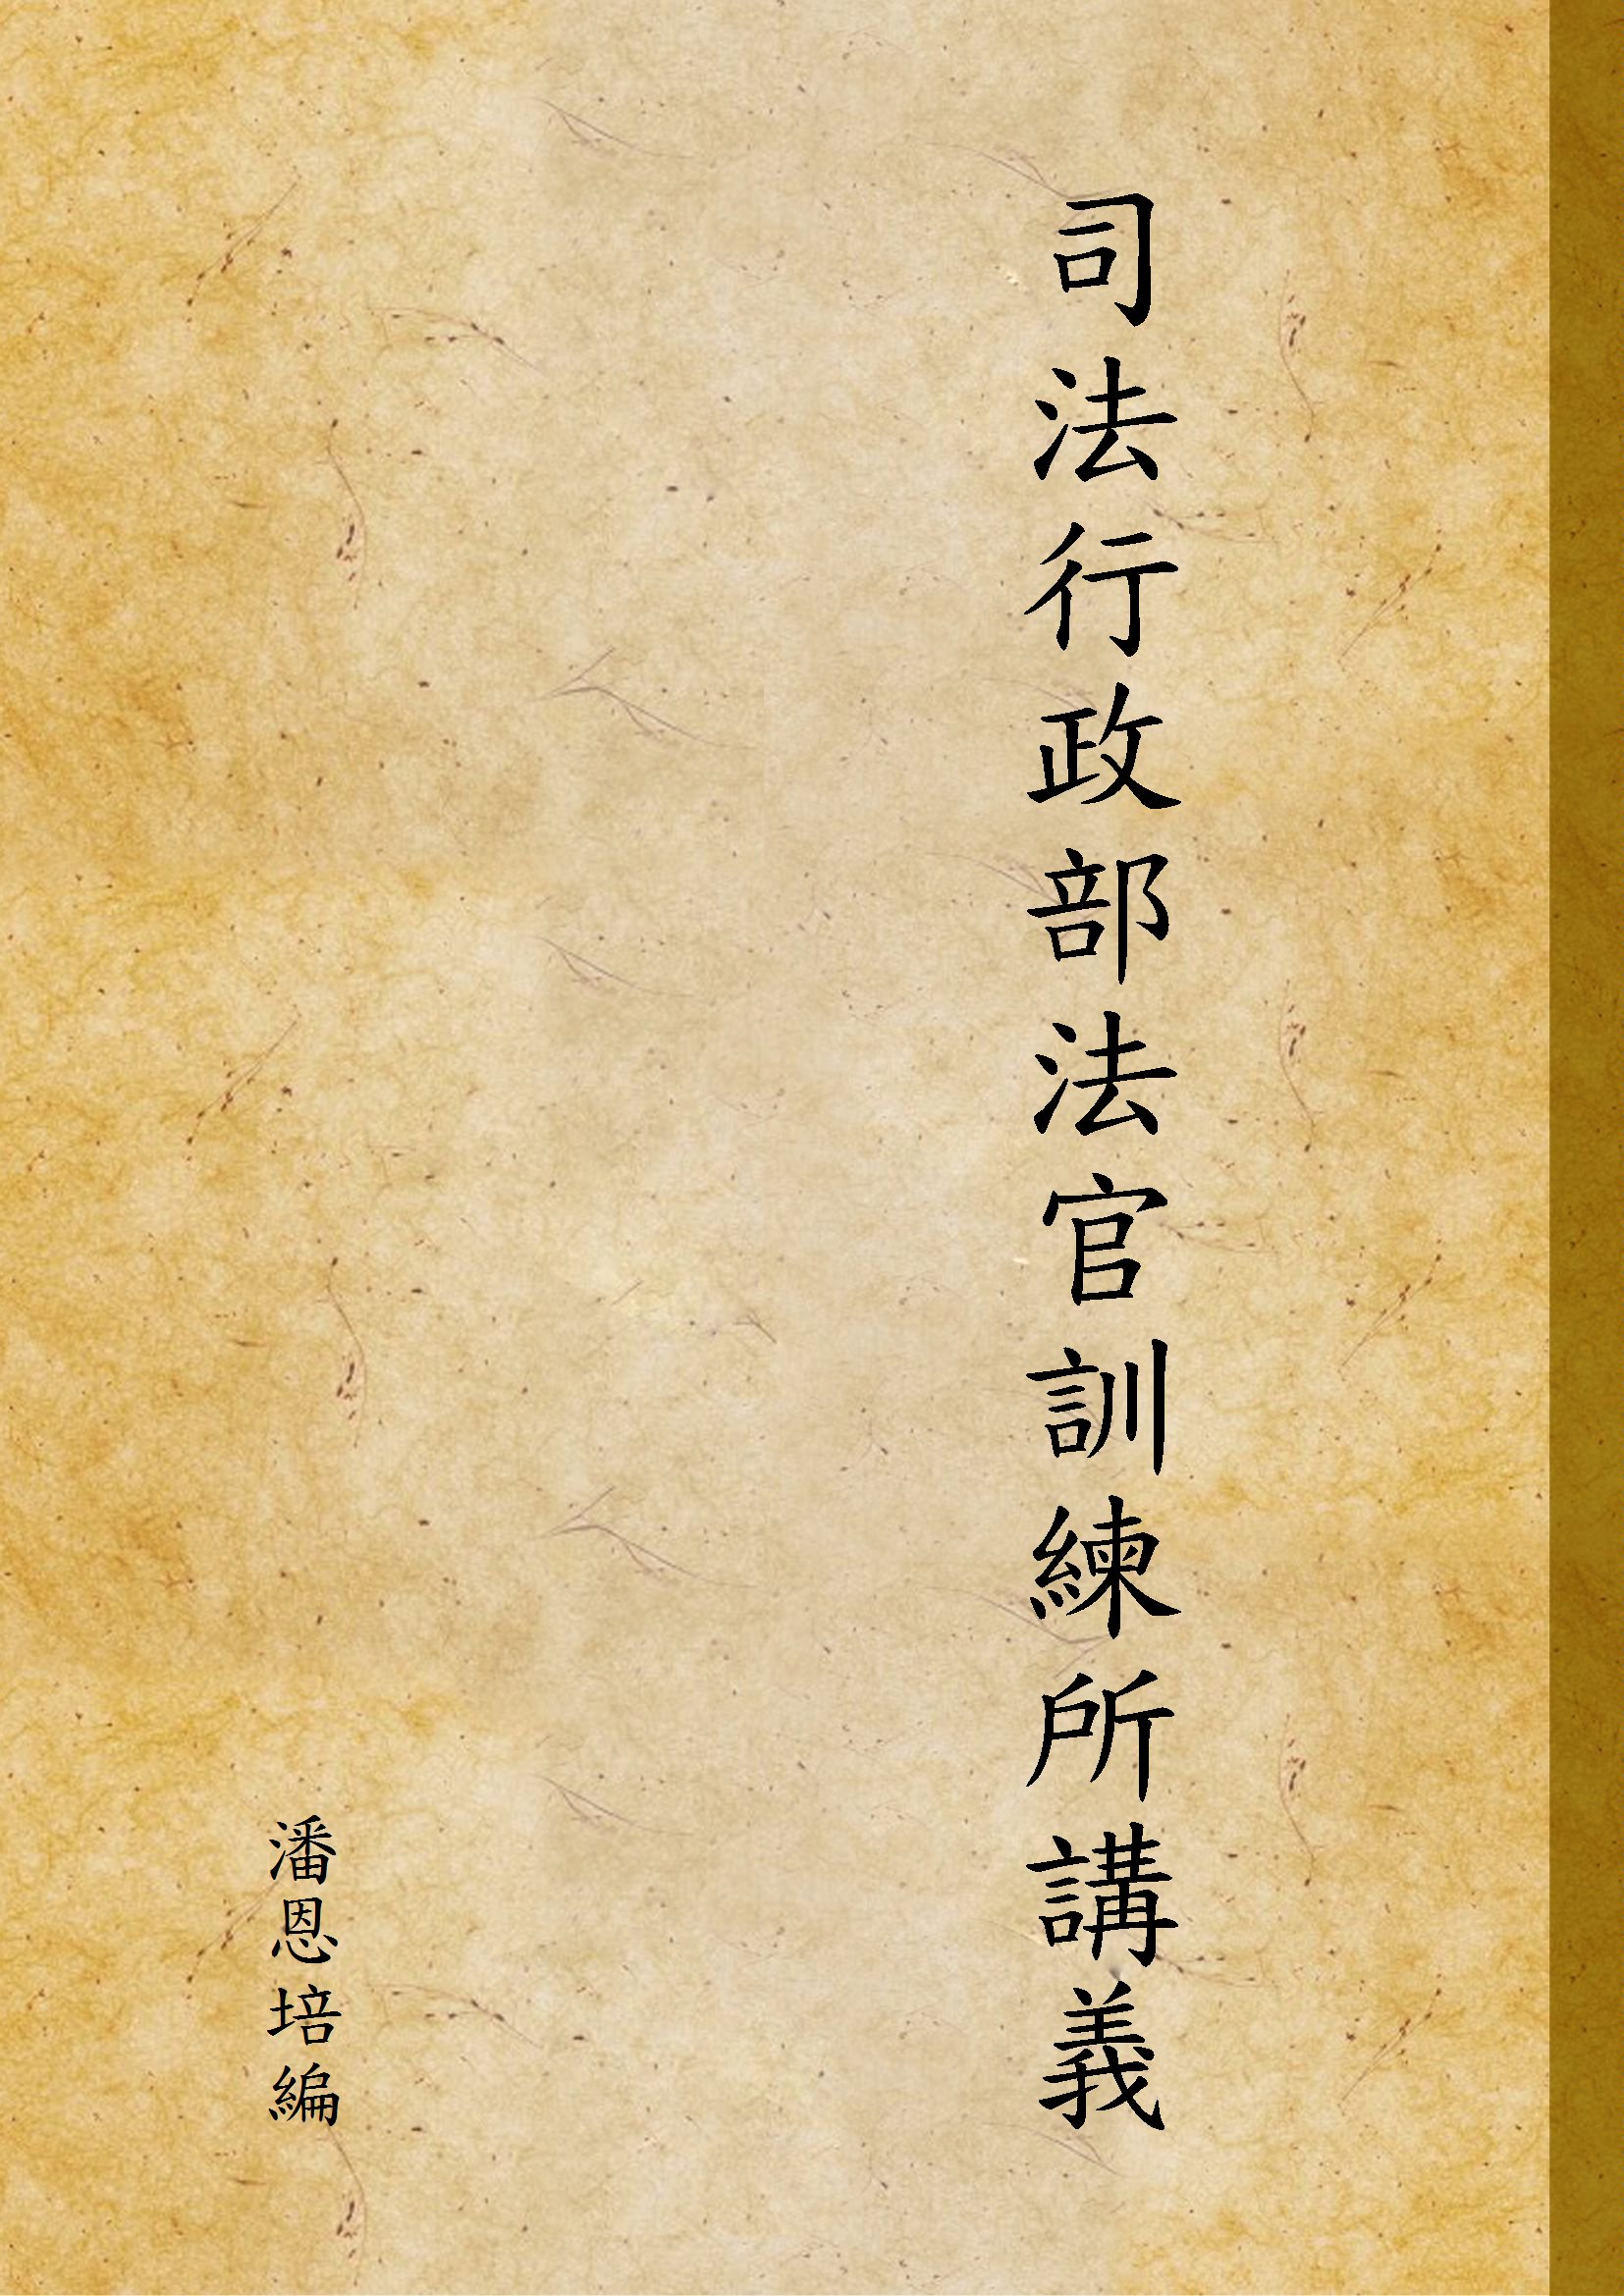 司法行政部法官訓練所講義
潘恩培編